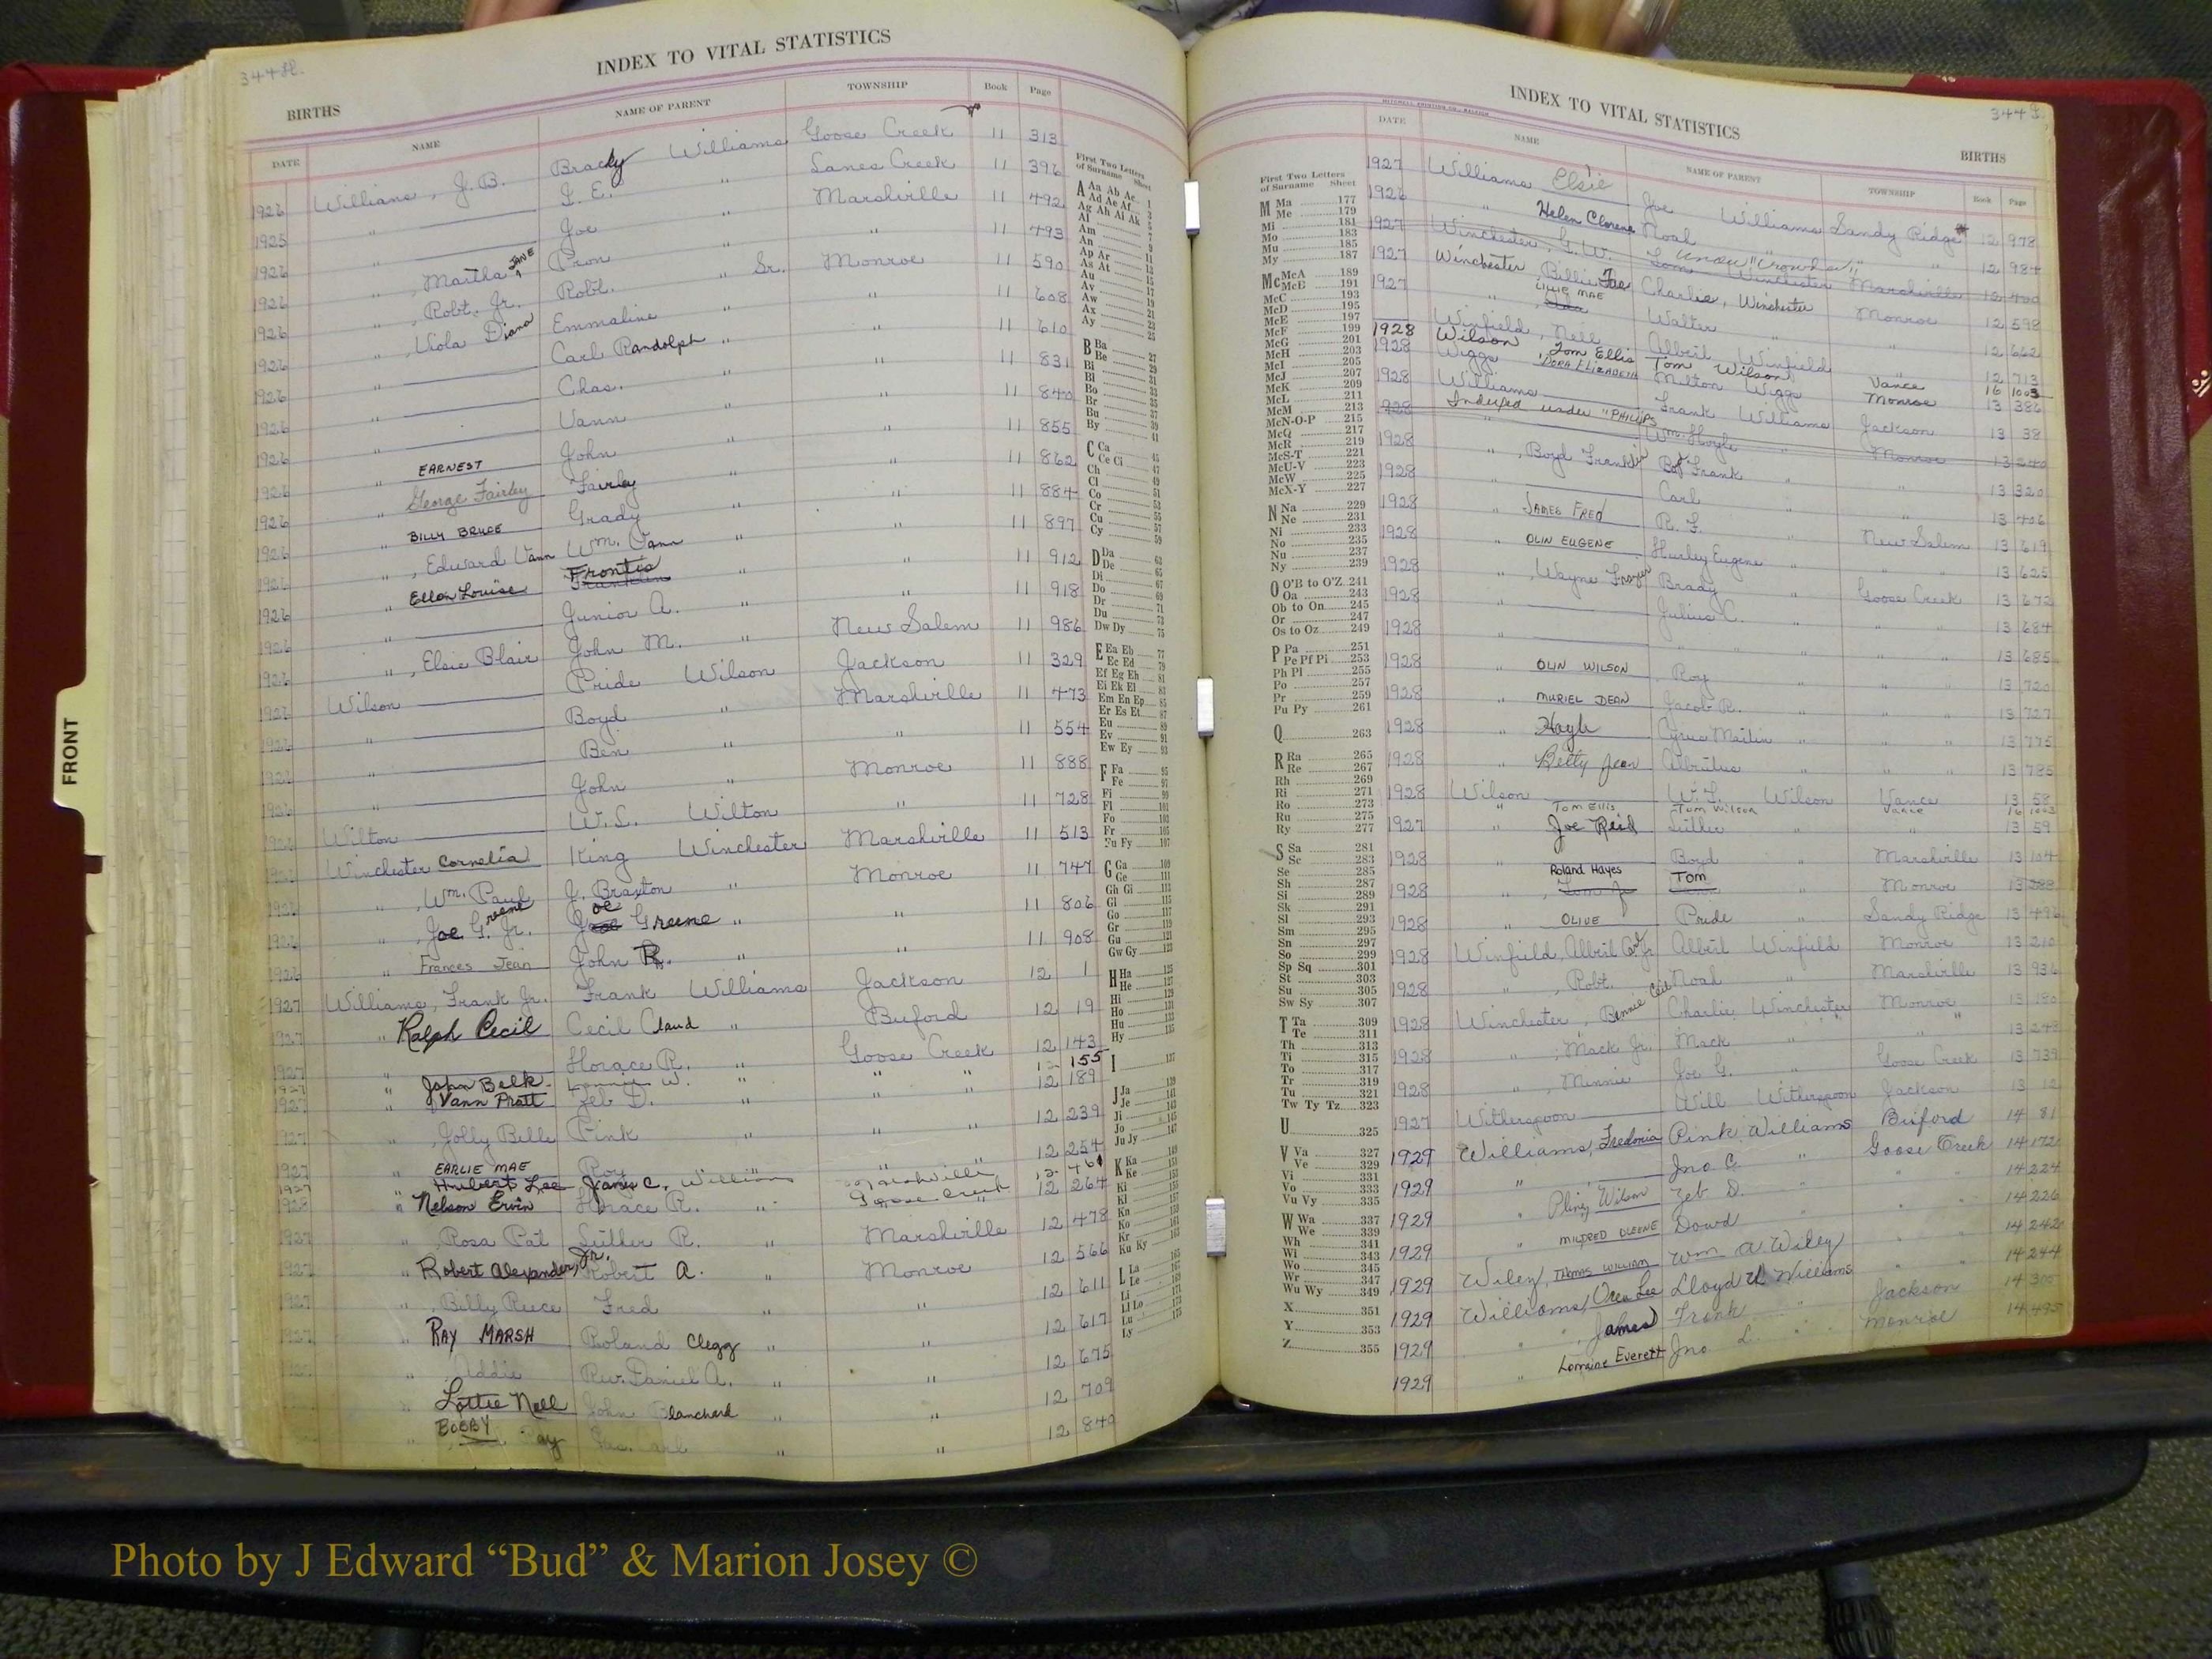 344 H.
INDEX TO VITAL STATISTICS
BIRTHS
DATE NAME NAME OF PARENT TOWNSHIP Book Page
1926 Williams, J. B. Brady Williams Goose Creek 11 313
1925 " J. E. " Lanes Creek 11 396
1926 " Joe " Marshville 11 492
1926 " , Martha JANE Pron " " 11 493
1926 " , Robt. Jr. Robt. " Sr. Monroe 11 590
1926 " , Viola Diana Emmaline " 11 608
1926 " Carl Randolph " " 11 610
1926 " Chas. " " 11 831
1926 " Vann " " 11 840
1926 " EARNEST John " " 11 855
1926 " George Fairley Fairley " " 11 862
1926 " BILLY BRUCE Grady " " 11 884
1926 " , Edward Vann Wm. Vann " " 11 897
1926 " Ellen Louise Frontis Franklin " " 11 912
1926 " Junior A. " " 11 918
1926 " , Elsie Blair John M. " New Salem 11 986
1926 Wilson Pride Wilson Jackson 11 329
1926 " Boyd " Marshville 11 473
1926 " Ben " " 11 554
1926 " John " Monroe 11 888
1926 Wilton W. L. Wilton " 11 728
1926 Winchester Cornelia King Winchester Marshville 11 513
1926 " , Wm. Paul J. Braxton " Monroe 11 747
1926 " , Joe Greene G. Jr. Joe Greene " " 11 806
1926 " Frances Jean John R. " " 11 908
1927 Williams, Frank Jr. Frank Williams Jackson 12 1
1927 " Ralph Cecil Cecil Claud " Buford 12 19
1927 " Horace R. " Goose Creek 12 143
1927 " John Belk W. " " " 12 155
1927 " Vann Pratt Zeb D. " " " 12 189
1927 " , Jolly Belle Pink " " " 12 239
1927 " EARLIE MAE Roy " " " 12 254
1927 " Hubert Lee James C. Williams Marshville 12 461
1928 " Nelson Ervin Horace R. " Goose Creek 12 264
1927 " , Rosa Pat Luther R. " Marshville 12 478
1927 " Robert Alexander, Jr. Robert A. " Monroe 12 566
1927 " , Billy Reece Fred " " 12 611
1927 " RAY MARSH Roland Clegg " " 12 617
" , Addie Rev. Daniel A. " " 12 675
" Lottie Nell John Blanchard " " 12 709
" BOBBY Ray Jas. Earl " " 12 840
First Two Letters of Surname Sheet
A Aa Ab Ac 1
Ad Ae Af 3
Ag Ah Ai Ak 5
Al 7
Am 9
An 11
Ap Ar 13
As At 15
Au 17
Av 19
Aw 21
Ax 23
Ay 25
B Ba 27
Be 29
Bi 31
Bl 33
Bo 35
Br 37
Bu 39
By 41
C Ca 45
Ce Ci 47
Ch 49
Cl 51
Co 53
Cr 55
Cu 57
Cy 59
D Da 62
De 65
Di 67
Do 69
Dr 71
Du 73
Dw Dy 75
E Ea Eb 77
Ec Ed 79
Ef Eg Eh 81
Ei Ek El 83
Em En Ep 85
Er Es Et 87
Eu 89
Ev 91
Ew Ey 93
F Fa 95
Fe 97
Fi 99
Fl 101
Fo 103
Fr 105
Fu Fy 107
G Ga 109
Ge 111
Gh Gi 113
Gl 115
Go 117
Gr 119
Gu 121
Gw Gy 123
H Ha 125
He 127
Hi 129
Ho 131
Hu 133
Hy 135
I 137
J Ja 139
Je 141
Ji 143
Jo 145
Ju Jy 147
K Ka 149
Ke 151
Ki 155
Kl 157
Kn 159
Ko 161
Kr 163
Ku Ky 165
L La 165
Le 167
Li 169
Ll Lo 171
Lu 173
Ly 175
INDEX TO VITAL STATISTICS
344 I.
BIRTHS
DATE NAME NAME OF PARENT TOWNSHIP Book Page
First Two Letters of Surname Sheet
M Ma 177
Me 179
Mi 181
Mo 183
Mu 185
My 187
Mc McA 189
McB 191
McC 193
McD 195
McE 197
McF 199
McG 201
McH 203
McI 205
McJ 207
McK 209
McL 211
McM 213
McN-O-P 215
McQ 217
McR 219
McS-T 221
McU-V 223
McW 225
McX-Y 227
N Na 229
Ne 231
Ni 233
No 235
Nu 237
Ny 239
O O'B to O'Z 241
Oa 243
Ob to On 245
Or 247
Os to Oz 249
P Pa 251
Pe Pf Pi 253
Ph Pl 255
Po 257
Pr 259
Pu Py 261
Q 263
R Ra 265
Re 267
Rh 269
Ri 271
Ro 273
Ru 275
Ry 277
S Sa 281
Sc 283
Se 285
Sh 287
Si 289
Sk 291
Sl 293
Sm 295
Sn 297
So 299
Sp Sq 301
St 303
Su 305
Sw Sy 307
T Ta 309
Te 311
Th 313
Ti 315
To 317
Tr 319
Tu 321
Tw Ty Tz 323
U 325
V Va 327
Ve 329
Vi 331
Vo 333
Vu Vy 335
W Wa 337
We 339
Wh 341
Wi 343
Wo 345
Wr 347
Wu Wy 349
X 351
Y 353
Z 355
1927 Williams Elsie Joe Williams Sandy Ridge 12 978
1926 " Helen Clorene Noah " " 12 984
1927 Winchester, G. W. Tom Winchester Marshville 12
1927 Winchester, Billie Fae Charlie, Winchester Monroe 12 598
1927 " LILLIE MAE Walter " " 12 662
Winfield, Nell Albert Winfield " 12 713
1928 Wilson Tom Ellis Tom Wilson Vance 16 1003
1928 Wiggs DORA ELIZABETH Milton Wiggs Monroe 13 386
1928 Williams Frank Williams Jackson 13 38
1928 Indexed under "PHILLIPS" Wm. Hoyle Monroe 13
1928 " , Boyd Franklin Boyd Frank " " 13 320
1928 " Carl " " 13 406
1928 " JAMES FRED R. F. " New Salem 13 619
1928 " OLIN EUGENE Hurley Eugene " " 13 625
1928 " , Wayne Frazier Brady " Goose Creek 13 672
1928 " Julius C. " " " 13 684
1928 " " " " " 13 685
1928 " OLIN WILSON Roy " " " 13 720
1928 " MURIEL DEAN Jacob R. " " " 13 727
1928 " Hayle Cyrus " " " 13 775
1928 " Betty Jean " " " 13 785
1928 Wilson W. L. Wilson Vance 13 58
" Tom Ellis Tom Wilson Vance 16 1003
1927 " Joe Reid Luther " " 13 59
1928 " Boyd " Marshville 13 104
1928 " Roland Hayes Tom " Monroe 13 288
1928 " OLIVE Pride " Sandy Ridge 13 496
1928 Winfield, Albert Jr. Albert Winfield Monroe 13 210
1928 " , Robt. Noah " Marshville 13 936
1928 Winchester, Bennie Ceil Charlie Winchester Monroe 13 180
1928 " , Mack Jr. Mack " " 13 248
1928 " , Minnie Joe G. " Goose Creek 13 739
1927 Witherspoon Will Witherspoon Jackson 13 12
1929 Williams, Fredonia Pink Williams Buford 14 81
1929 " Jno C. " Goose Creek 14 172
1929 " Pliny Wilson Zeb D. " " 14 224
1929 " MILDRED DLEENE Dowd " " 14 226
1929 Wiley, THOMAS WILLIAM Wm A Wiley " " 14 242
1929 Williams, Ora Lee Lloyd U. Williams " " 14 244
1929 " , James Frank " Jackson 14
1929 " Lorraine Everett Jno L. " Monroe 14 495
Photo by J Edward “Bud” & Marion Josey ©
FRONT